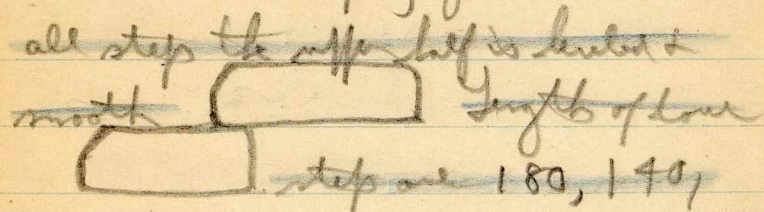 all step the upper half is leveled &
smooth Length of four
step are 180, 140,